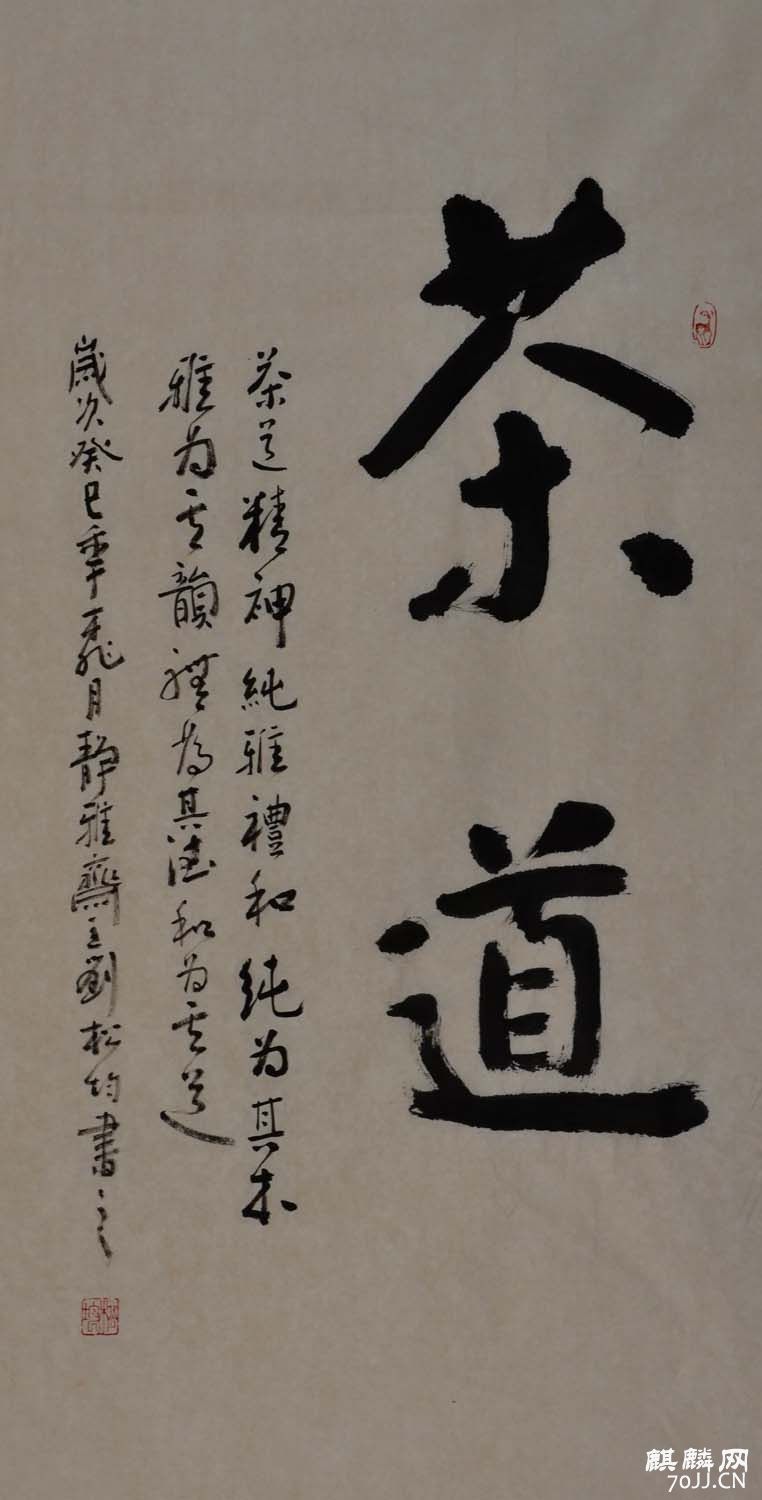 茶道
茶道精神純雅禮和純为其本
雅为其韻禮為其德和为其道
歲次癸巳年月靜雅齋主劉松均書之
麒麟网
70JJ.CN